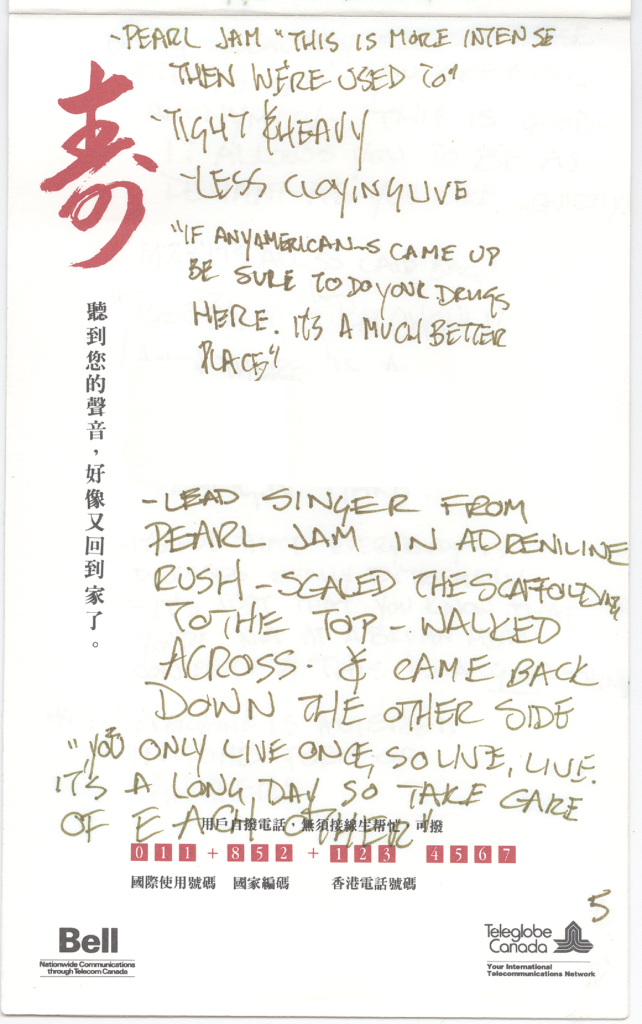 -PEARL JAM "THIS IS MORE INTENSE
THEN WE'RE USED TO"
-TIGHT & HEAVY
-LESS CLOYING LIVE
"IF ANY AMERICANS CAME UP
BE SURE TO DO YOUR DRUGS
HERE. IT'S A MUCH BETTER
PLACE"
壽
聽到您的聲音，好像又回到家了。
-LEAD SINGER FROM
PEARL JAM IN ADRENILINE
RUSH - SCALED THE SCAFFOLDING
TO THE TOP - WALKED
ACROSS. & CAME BACK
DOWN THE OTHER SIDE
"YOU ONLY LIVE ONCE, SO LIVE, LIVE.
IT'S A LONG DAY SO TAKE CARE
OF EACH OTHER"
用戶自撥電話，無須接線生幫忙，可撥
011 + 852 + 123 4567
國際使用號碼 國家編碼 香港電話號碼
5
Bell
Nationwide Communications
through Telecom Canada
Teleglobe
Canada
Your International
Telecommunications Network